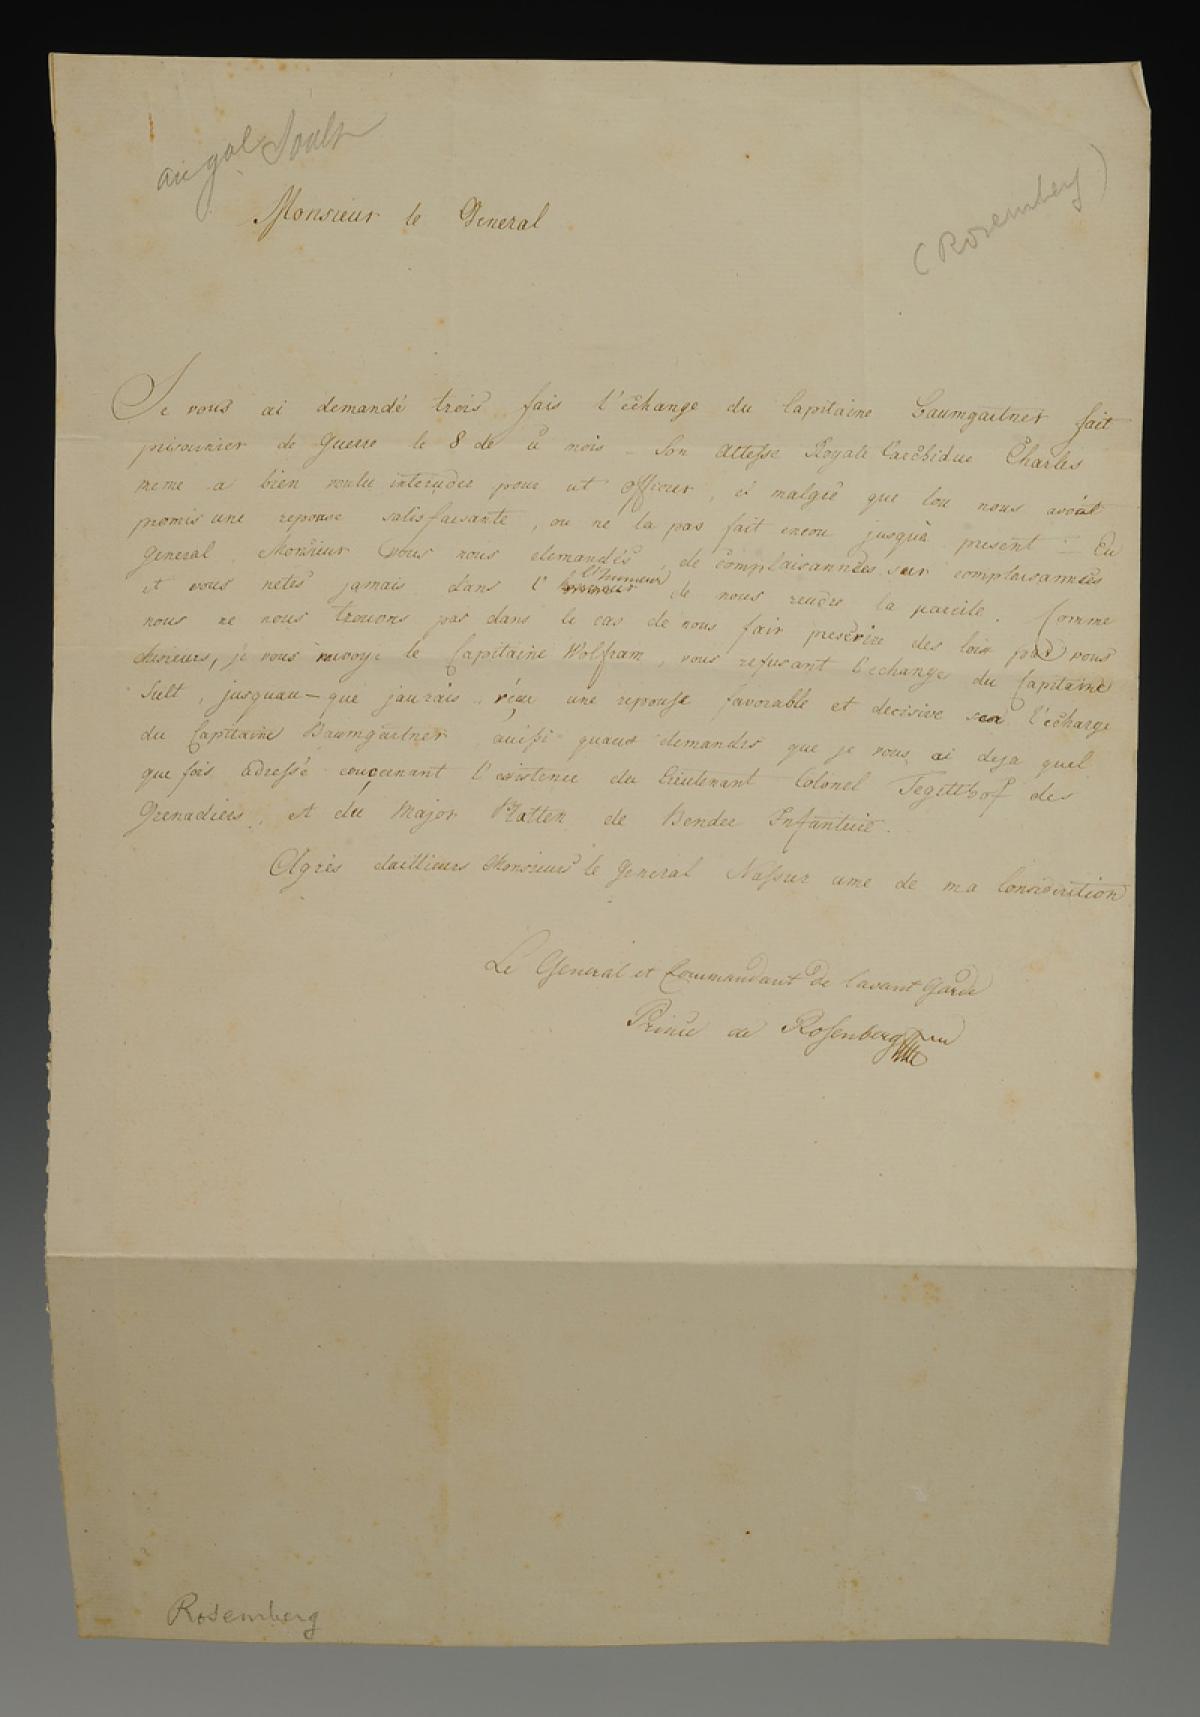 au gal Soult
(Rosemberg)
Monsieur le General
Je vous ai demandé trois fais l'échange du Capitaine Baumgartner fait
prisonnier de Guerre le 8 de ce mois - Son Altesse Royale l'archiduc Charles
meme a bien voulu interceder pour cet officier, et malgré que lon nous avoit
promis une reponse satisfaisante, on ne la pas fait encore jusquà present
General Monsieur vous nous demandés de complaisannées sur complaisannées
et vous netes jamais dans l' l'humeur de nous rendre la pareile. Comme
nous ne nous trouvons pas dans le cas de nous fair prescrire des lois par vous
Messieurs, je vous renvoye le Capitaine Wolfram, vous refusant l'echange du Capitaine
Sult, jusquau - que jaurais reçu une reponse favorable et decisive sur l'échange
du Capitaine Baumgartner, aussi quaux demandes que je vous ai deja quel
que fois adressé conçernant l'existence du Lieutenant Colonel Tegetthof des
Grenadiers, et du Major Platten de Bender Infanterie.
Agrés daillieurs Monsieur le General lassurance de ma Consideration
Le General et Commandant de lavant Garde
Prince de Rosenberg
Rosemberg